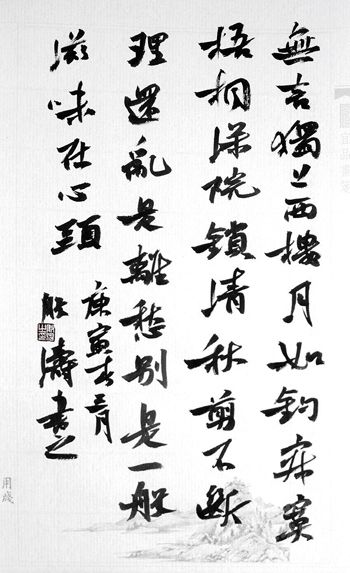 無言獨上西樓月如鈎寂寞
梧桐深院鎖清秋剪不斷
理還亂是離愁別是一般
滋味在心頭
庚寅春月
濤書之
用箋